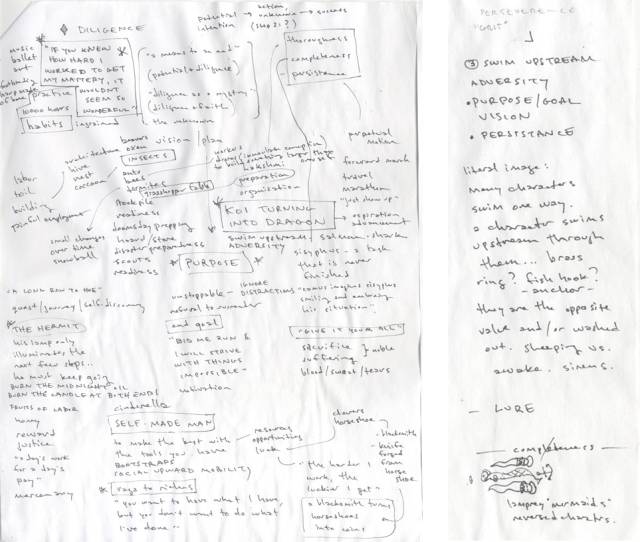 DILIGENCE
potential → action, unknown → success
intention (step 2!?)
music
ballet
art
"IF YOU KNEW
HOW HARD I
WORKED TO GET
MY MASTERY, IT
WOULDN'T
SEEM SO
WONDERFUL"
practice
10,000 hours
habits ingrained
"a means to an end"
(potential + diligence)
"diligence as a mystery"
(diligence + faith)
the unknown
thoroughness
completeness
persistance
perpetual
motion
forward march
travel
marathon
"just show up"
aspiration
advancement
labor
toil
building
painful employment
architecture
hive
nest
cocoon
beavers
oxen
vision / plan
INSECTS
ants
bees
termites
grasshopper fable
workers
drones
to build something larger than
oneself
preparation
organization
stockpile
readiness
doomsday prepping
hoard / store
disaster preparedness
scouts
readiness
small changes
over time
snowball
KOI TURNING
INTO DRAGON
swim upstream - salmon - shark
ADVERSITY
sisyphus - a task
that is never
finished
"camus imagines sisyphus
smiling and embracing
his situation"
PURPOSE
unstoppable - IGNORE
DISTRACTIONS
refusal to surrender
end goal
"BID ME RUN &
I WILL STRIVE
WITH THINGS
IMPOSSIBLE"
motivation
"GIVE IT YOUR ALL"
sacrifice
suffering
noble
blood/sweat/tears
"A LONG ROW TO HOE"
quest/journey/self-discovery
THE HERMIT
his lamp only
illuminates the
next few steps..
he must keep going
BURN THE MIDNIGHT OIL
BURN THE CANDLE AT BOTH ENDS
FRUITS OF LABOR
honey
reward
justice
"a day's work
for a day's
pay"
mercenary
cinderella
SELF-MADE MAN
to make the best with
the tools you have
BOOTSTRAPS
SOCIAL UPWARD MOBILITY
resources
opportunities
luck
rags to riches
"you want to have what I have,
but you don't want to do what
I've done"
clovers
horseshoe
blacksmith
knife
forged
from
horse
shoe
"the harder I
work, the
luckier I get"
a blacksmith turns
horseshoes
into coins
PERSEVERENCE
"GRIT"
③ SWIM UPSTREAM
ADVERSITY
• PURPOSE/GOAL
VISION
• PERSISTANCE
literal image:
many characters
swim one way.
a character swims
upstream through
them... brass
ring? fish hook?
- anchor -
they are the opposite
value and/or washed
out. sleeping vs.
awake. sirens.
— LURE
— completeness —
lamprey "mermaids"